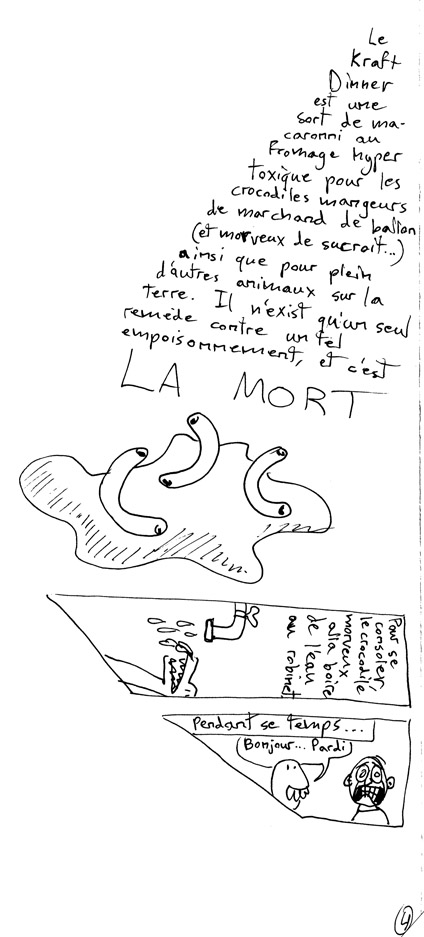 Le
Kraft
Dinner
est une
sort de ma-
caronni au
fromage Hyper
toxique pour les
crocodiles mangeurs
de marchand de ballon
(et morveux de sucroit...)
ainsi que pour plein
d'autres animaux sur la
terre. Il n'exist qu'un seul
remède contre un tel
empoisonnement, et c'est
LA MORT
Pour se
consoler,
le crocodile
morveux
alla boire
de l'eau
au robinet
Pendant se temps...
Bonjour... Pardi
4